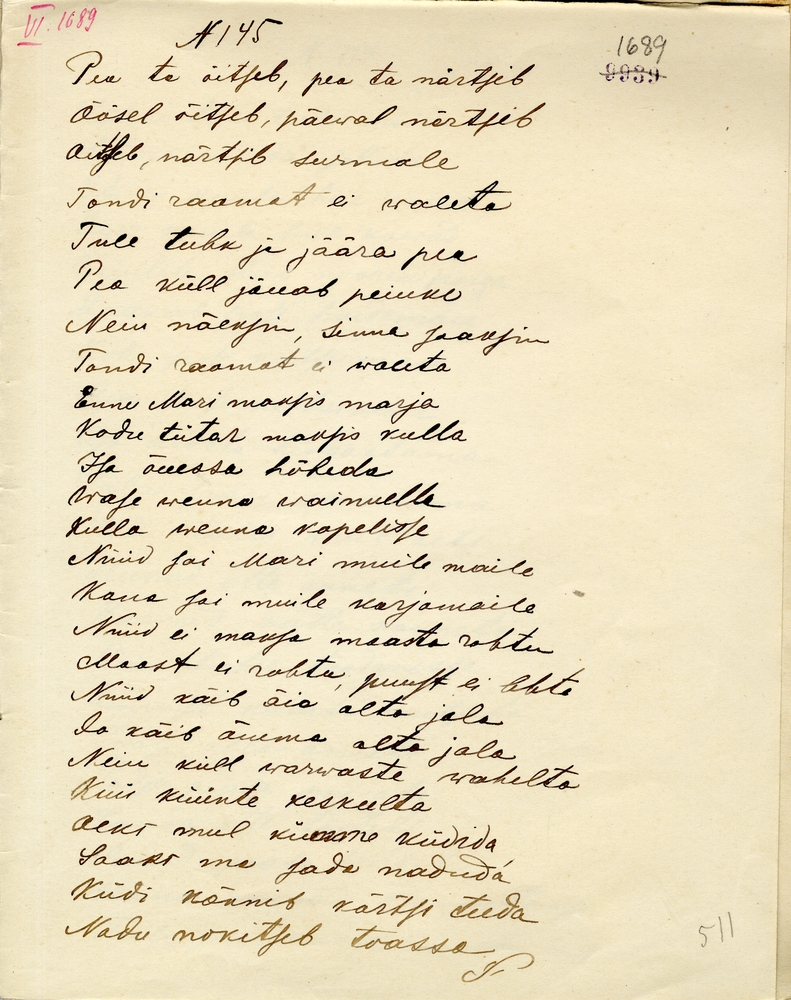 VI. 1689
№ 145
1689
9939
Pea ta õitseb, pea ta närtsib
Öösel õitseb, päewal närtsib
Õitseb, närtsib surmale
Tondi raamat ei waleta
Tule tuhk ja jäära pea
Pea küll jäuab peiuke
Nein näeksin, sinna saaksin
Tondi raamat ei waleta
Enne Mari maksis marja
Kodu tütar maksis kulla
Isa õuessa hõbeda
Wase wenna wainuella
Kulla wenna kopelisse
Nüüd sai Mari muile maile
Kana sai muile karjamaile
Nüüd ei maksa maasta rohtu
Maast ei rohtu, puust ei lehte
Nüüd käib äia alta jala
Ja käib ämma alta jala
Nein küll warwaste wahelta
Küü küünte keskeelta
Oeks mul küdida
Saaks ma sada naduda
Küdi kõnnib kärtsi teeda
Nadu nokitseb toassa
511